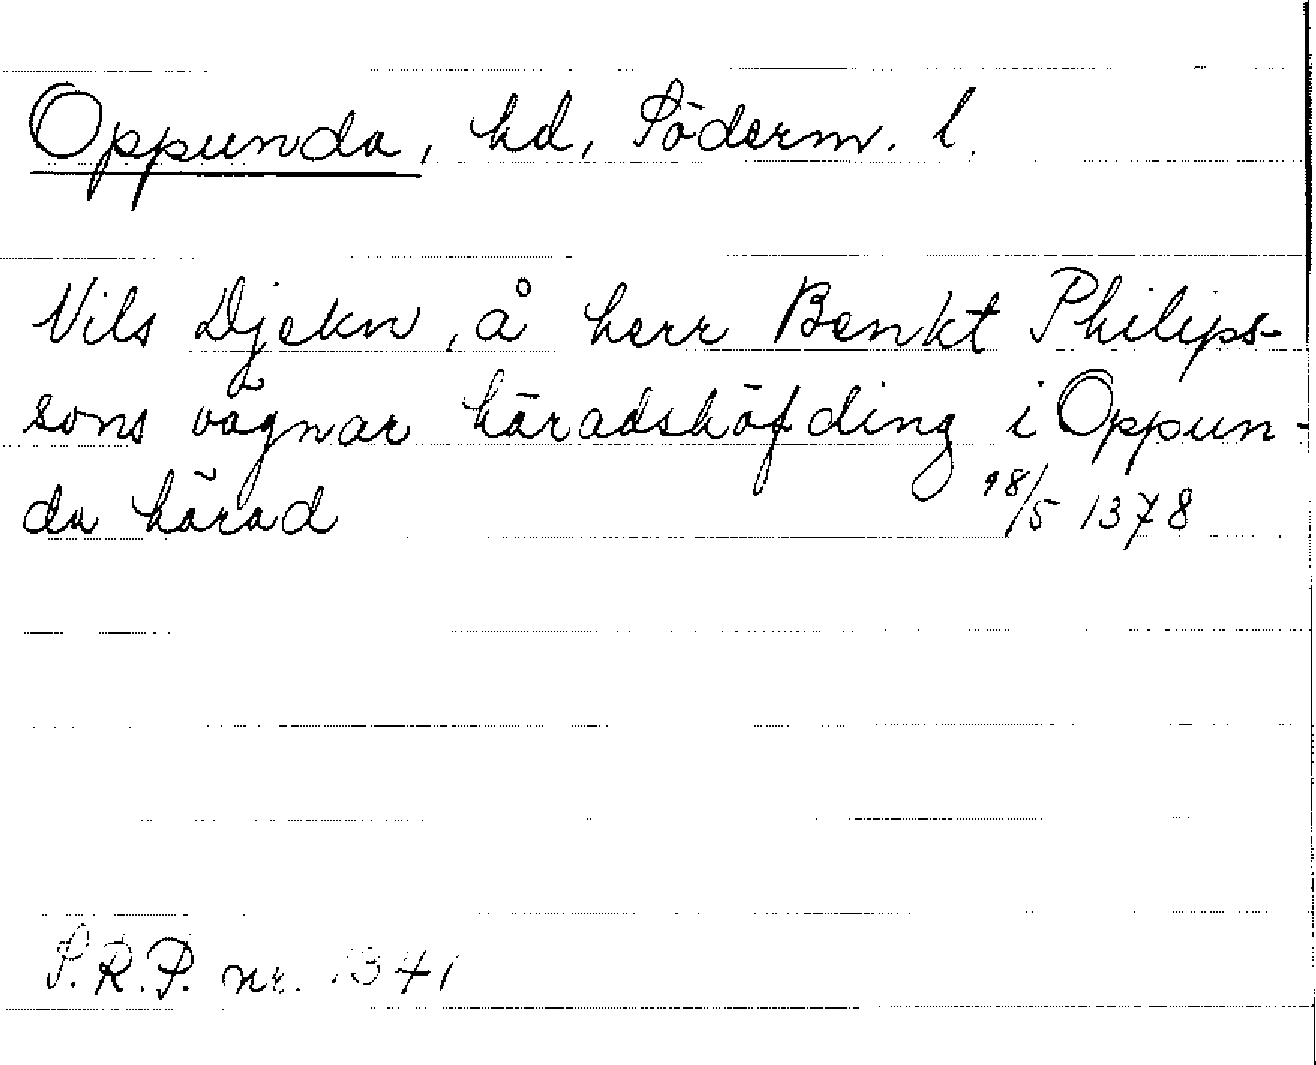 Oppunda, hd, Söderm. l.
Nils Djekn, å herr Benkt Philips-
sons vägnar häradshöfding i Oppun-
da härad 18/5 1378
S.R.P. nr. 1341